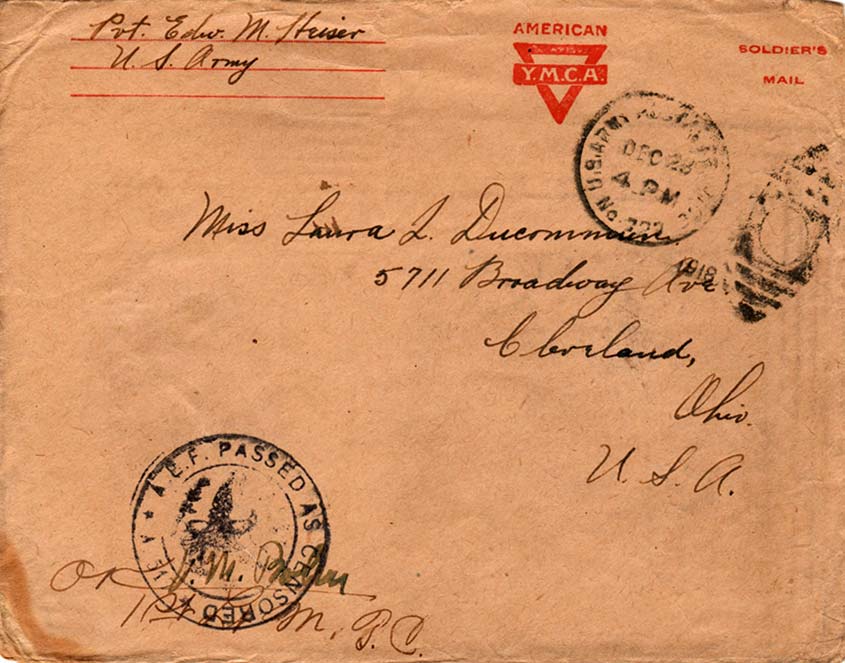 Pvt. Edw. M. Heiser
U. S. Army
AMERICAN
Y.M.C.A.
SOLDIER'S
MAIL
U.S. ARMY
DEC 28
4 PM
No.
1918
Miss Laura L. Ducommun
5711 Broadway Ave
Cleveland,
Ohio.
U. S. A.
A.E.F. PASSED AS CENSORED
OK
M.
M. P. C.